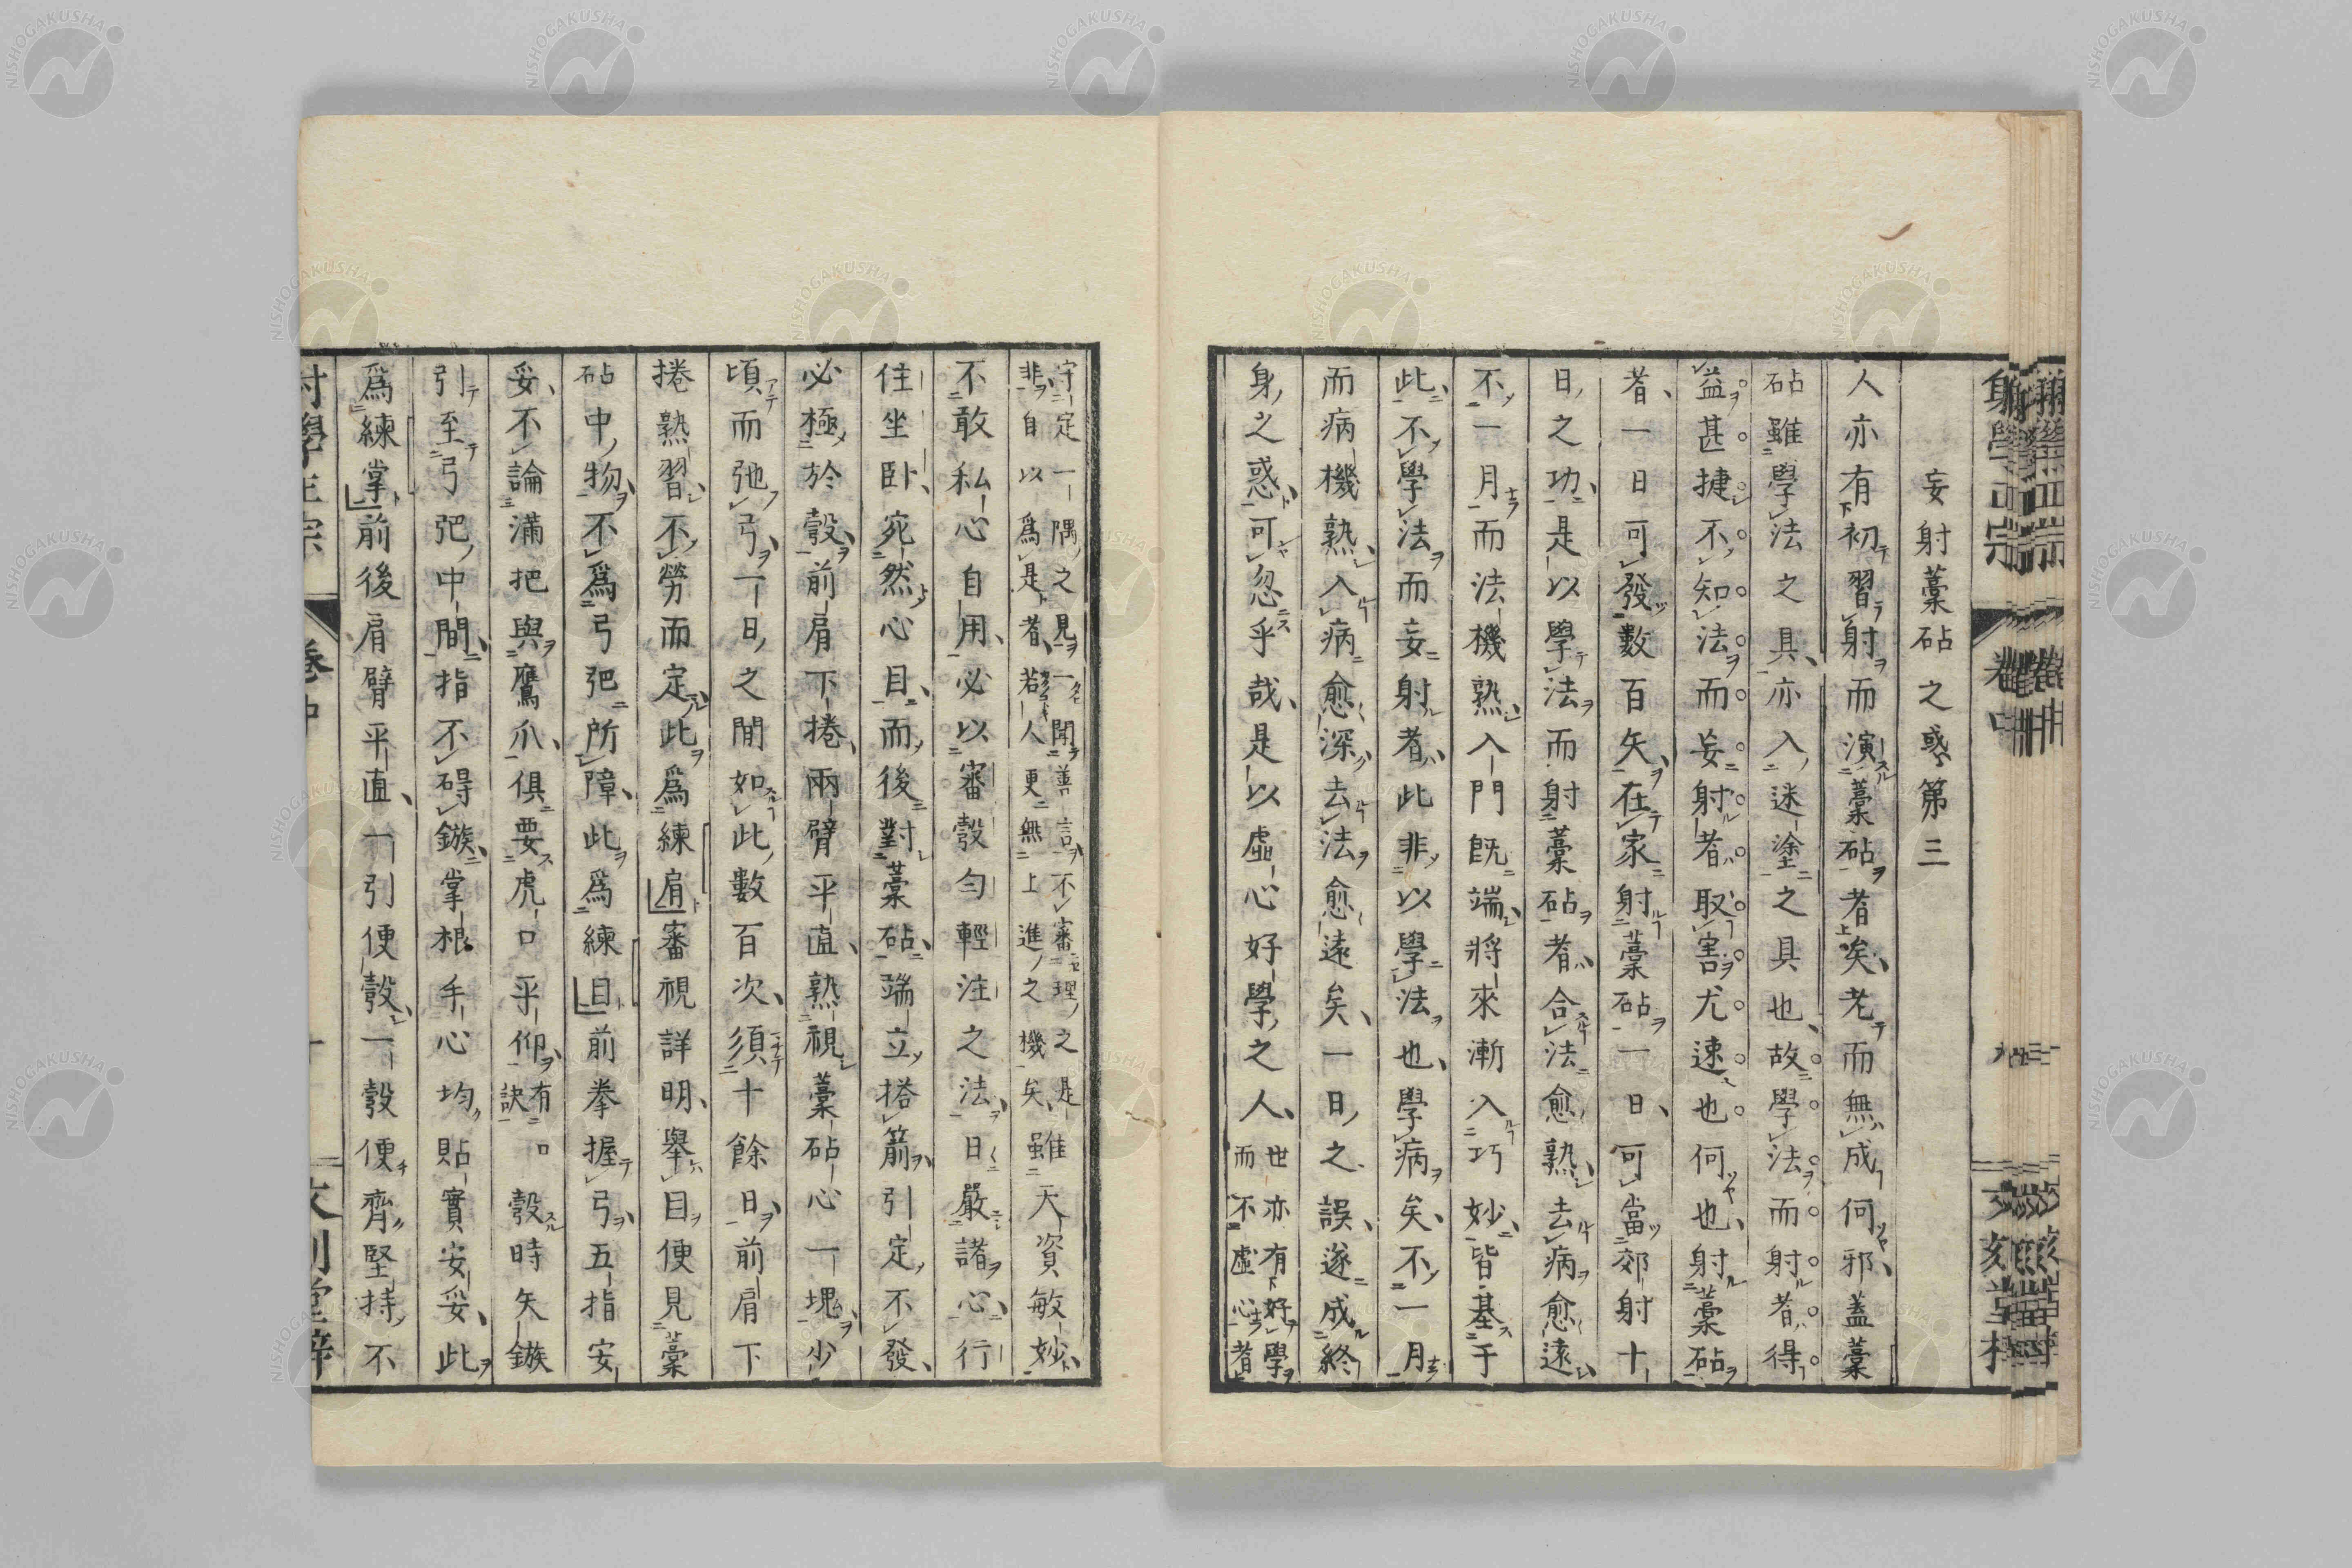 妄射藁砧之惑第三
人亦有初習射而演藁砧者矣老而無成何邪蓋藁
砧雖學法之具亦入迷塗之具也故學法而射者得
益甚捷不知法而妄射者取害尤速也何也射藁砧
者一日可發數百矢在家射藁砧一日可當郊射十
日之功是以學法而射藁砧者合法愈熟去病愈遠
不一月而法機熟入門既端將來漸入巧妙皆基于
此不學法而妄射者此非以學法也學病矣不一月
而病機熟入病愈深去法愈遠矣一日之誤遂成終
身之惑可忽乎哉是以虛心好學之人世亦有好學
而不虛心者
守定一隅之見一聞善言不審理之是
非自以爲是者若人更無上進之機矣雖天資敏妙
不敢私心自用必以審彀勻輕注之法日嚴諸心行
住坐卧宛然心目而後對藁砧端立搭箭引定不發
必極於彀前肩下捲兩臂平直熟視藁砧心一塊少
頃而弛弓一日之間如此數百次須十餘日前肩下
捲熟習不勞而定此爲練肩審視詳明舉目便見藁
砧中物不爲弓弝所障此爲練目前拳握弓五指安
妥不論滿把與鷹爪俱要虎口平仰有訣口彀時矢鏃
引至弓弝中間指不碍鏃掌根手心均貼實安妥此
爲練掌前後肩臂平直一引便彀一彀便齊堅持不
射學正宗
卷中
NISHOGAKUSHA